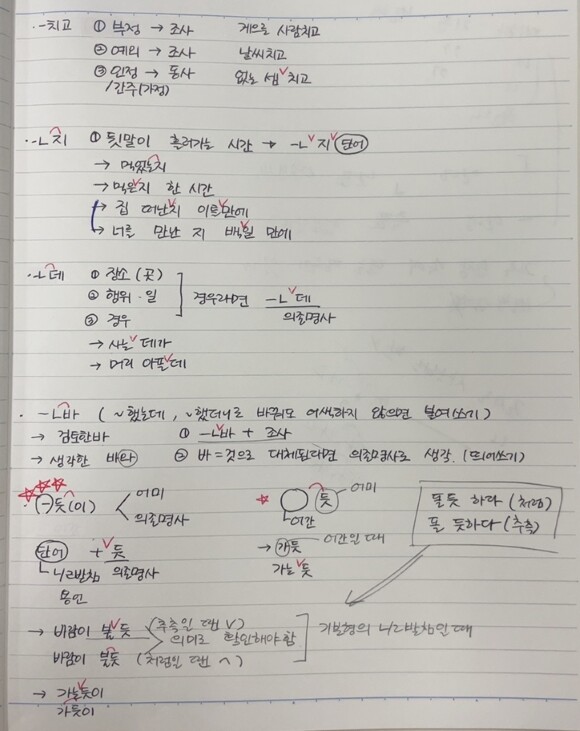 ·-치고 ① 부정 → 조사 게으로 사람치고
② 예외 → 조사 날씨치고
③ 인정 → 동사 없는 셈∨치고
/간주(가정)
·-ㄴ지 ① 뒷말이 흘러가는 시간 → -ㄴ∨지∨단어
→ 먹었는지
→ 먹은∨지 한 시간
→ 집 떠난∨지 이틀∨만에
→ 너를 만난 지 백일 만에
·-ㄴ데 ① 장소 (곳)
② 행위·일 경우라면 -ㄴ∨데
③ 경우 의존명사
→ 사는∨데가
→ 머리 아플∨데
· -ㄴ바 (~했는데, ~했더니로 바꿔도 어색하지 않으면 붙여쓰기)
→ 검토한바 ① -ㄴ∨바 + 조사
→ 생각한 바와 ② 바=것으로 대체된다면 의존명사로 생각. (띄어쓰기)
☆☆☆
·(-)듯(이) < 어미
의존명사
☆ ○듯 어미
어간
뜰듯 하다 (처럼)
뜰 듯하다 (추측)
단어 + ∨듯
ㄴ/ㄹ받침 의존명사
용언
→ 갸듯 어간일 때
가는∨듯
→ 바람이 불∨듯 (추측일 땐 ∨)
의미로 확인해야 함
바람이 불듯 (처럼일 땐 ⌒)
기본형의 ㄴ/ㄹ받침인 때
→ 가는∨듯이
가듯이